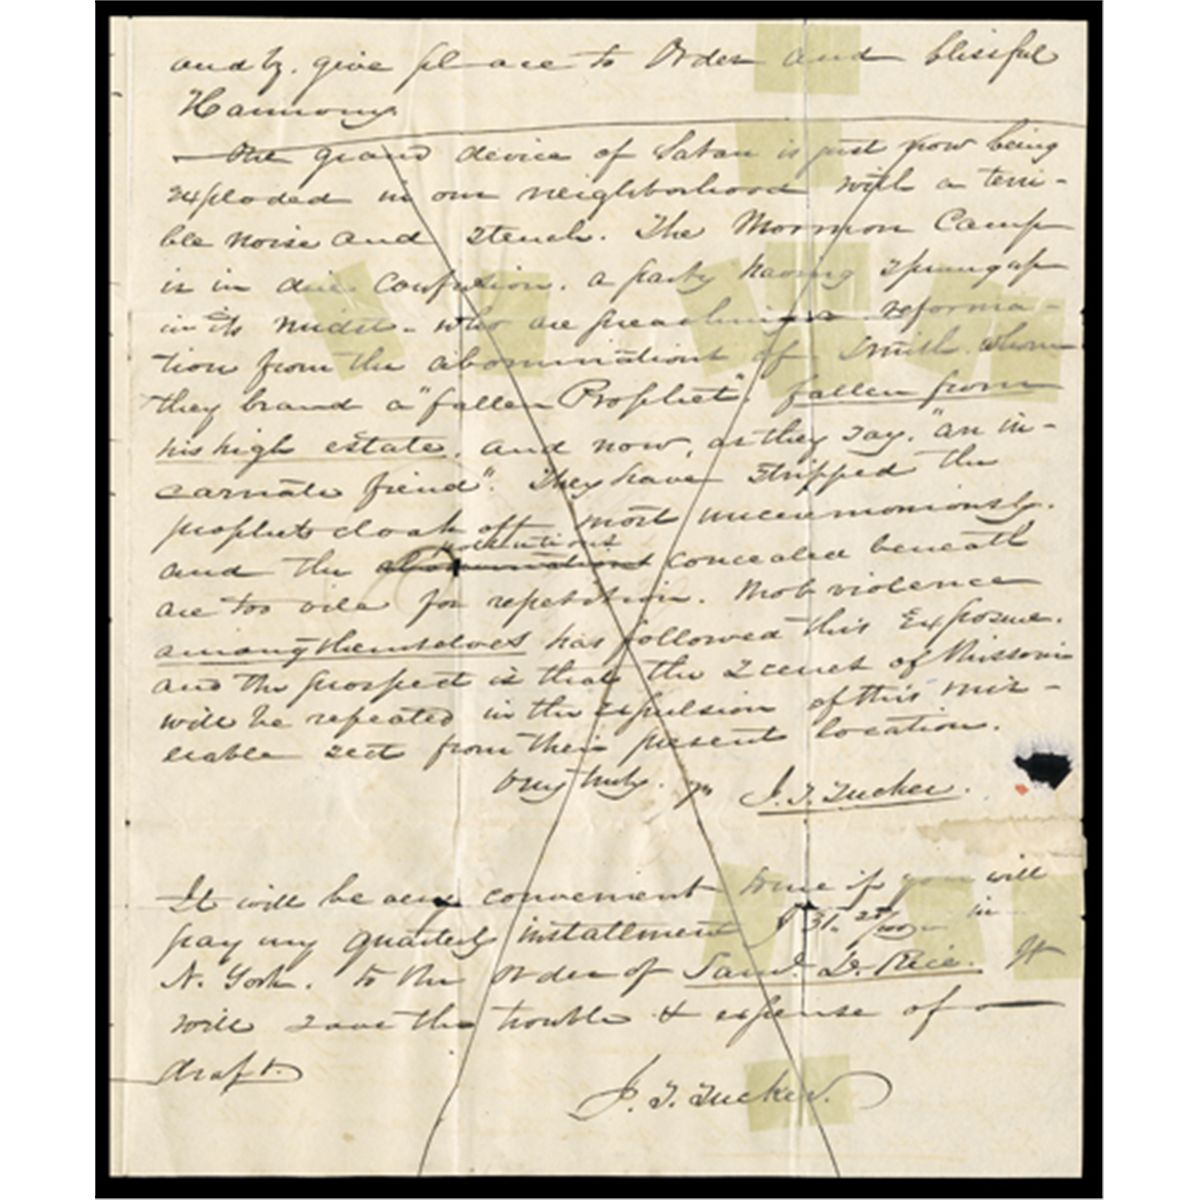 and by. give place to Order and blissful
Harmony.
— The grand device of Satan is just now being
exploded in our neighborhood with a terri-
ble noise and stench. The Mormon Camp
is in dire confusion. a party having sprung up
in its midst - who are preaching a reforma-
tion from the abominations of Smith. whom
they brand a "fallen Prophet". fallen from
his high estate, and now, as they say, "an in-
carnate fiend". They have stripped the
prophets cloak off most unceremoniously.
pollutions
and the abominations concealed beneath
are too vile for repetition. Mob violence
among themselves has followed this Exposure.
and the prospect is that the scenes of Missouri
will be repeated in the expulsion of this mis-
erable sect from their present location.
Very truly. Yrs J. T. Tucker.
It will be very convenient to me if you will
pay my quarterly installment $31. 25/100 in
N. York. to the order of Saml. D. Rice. It
will save the trouble & expense of a
draft.
J. T. Tucker.